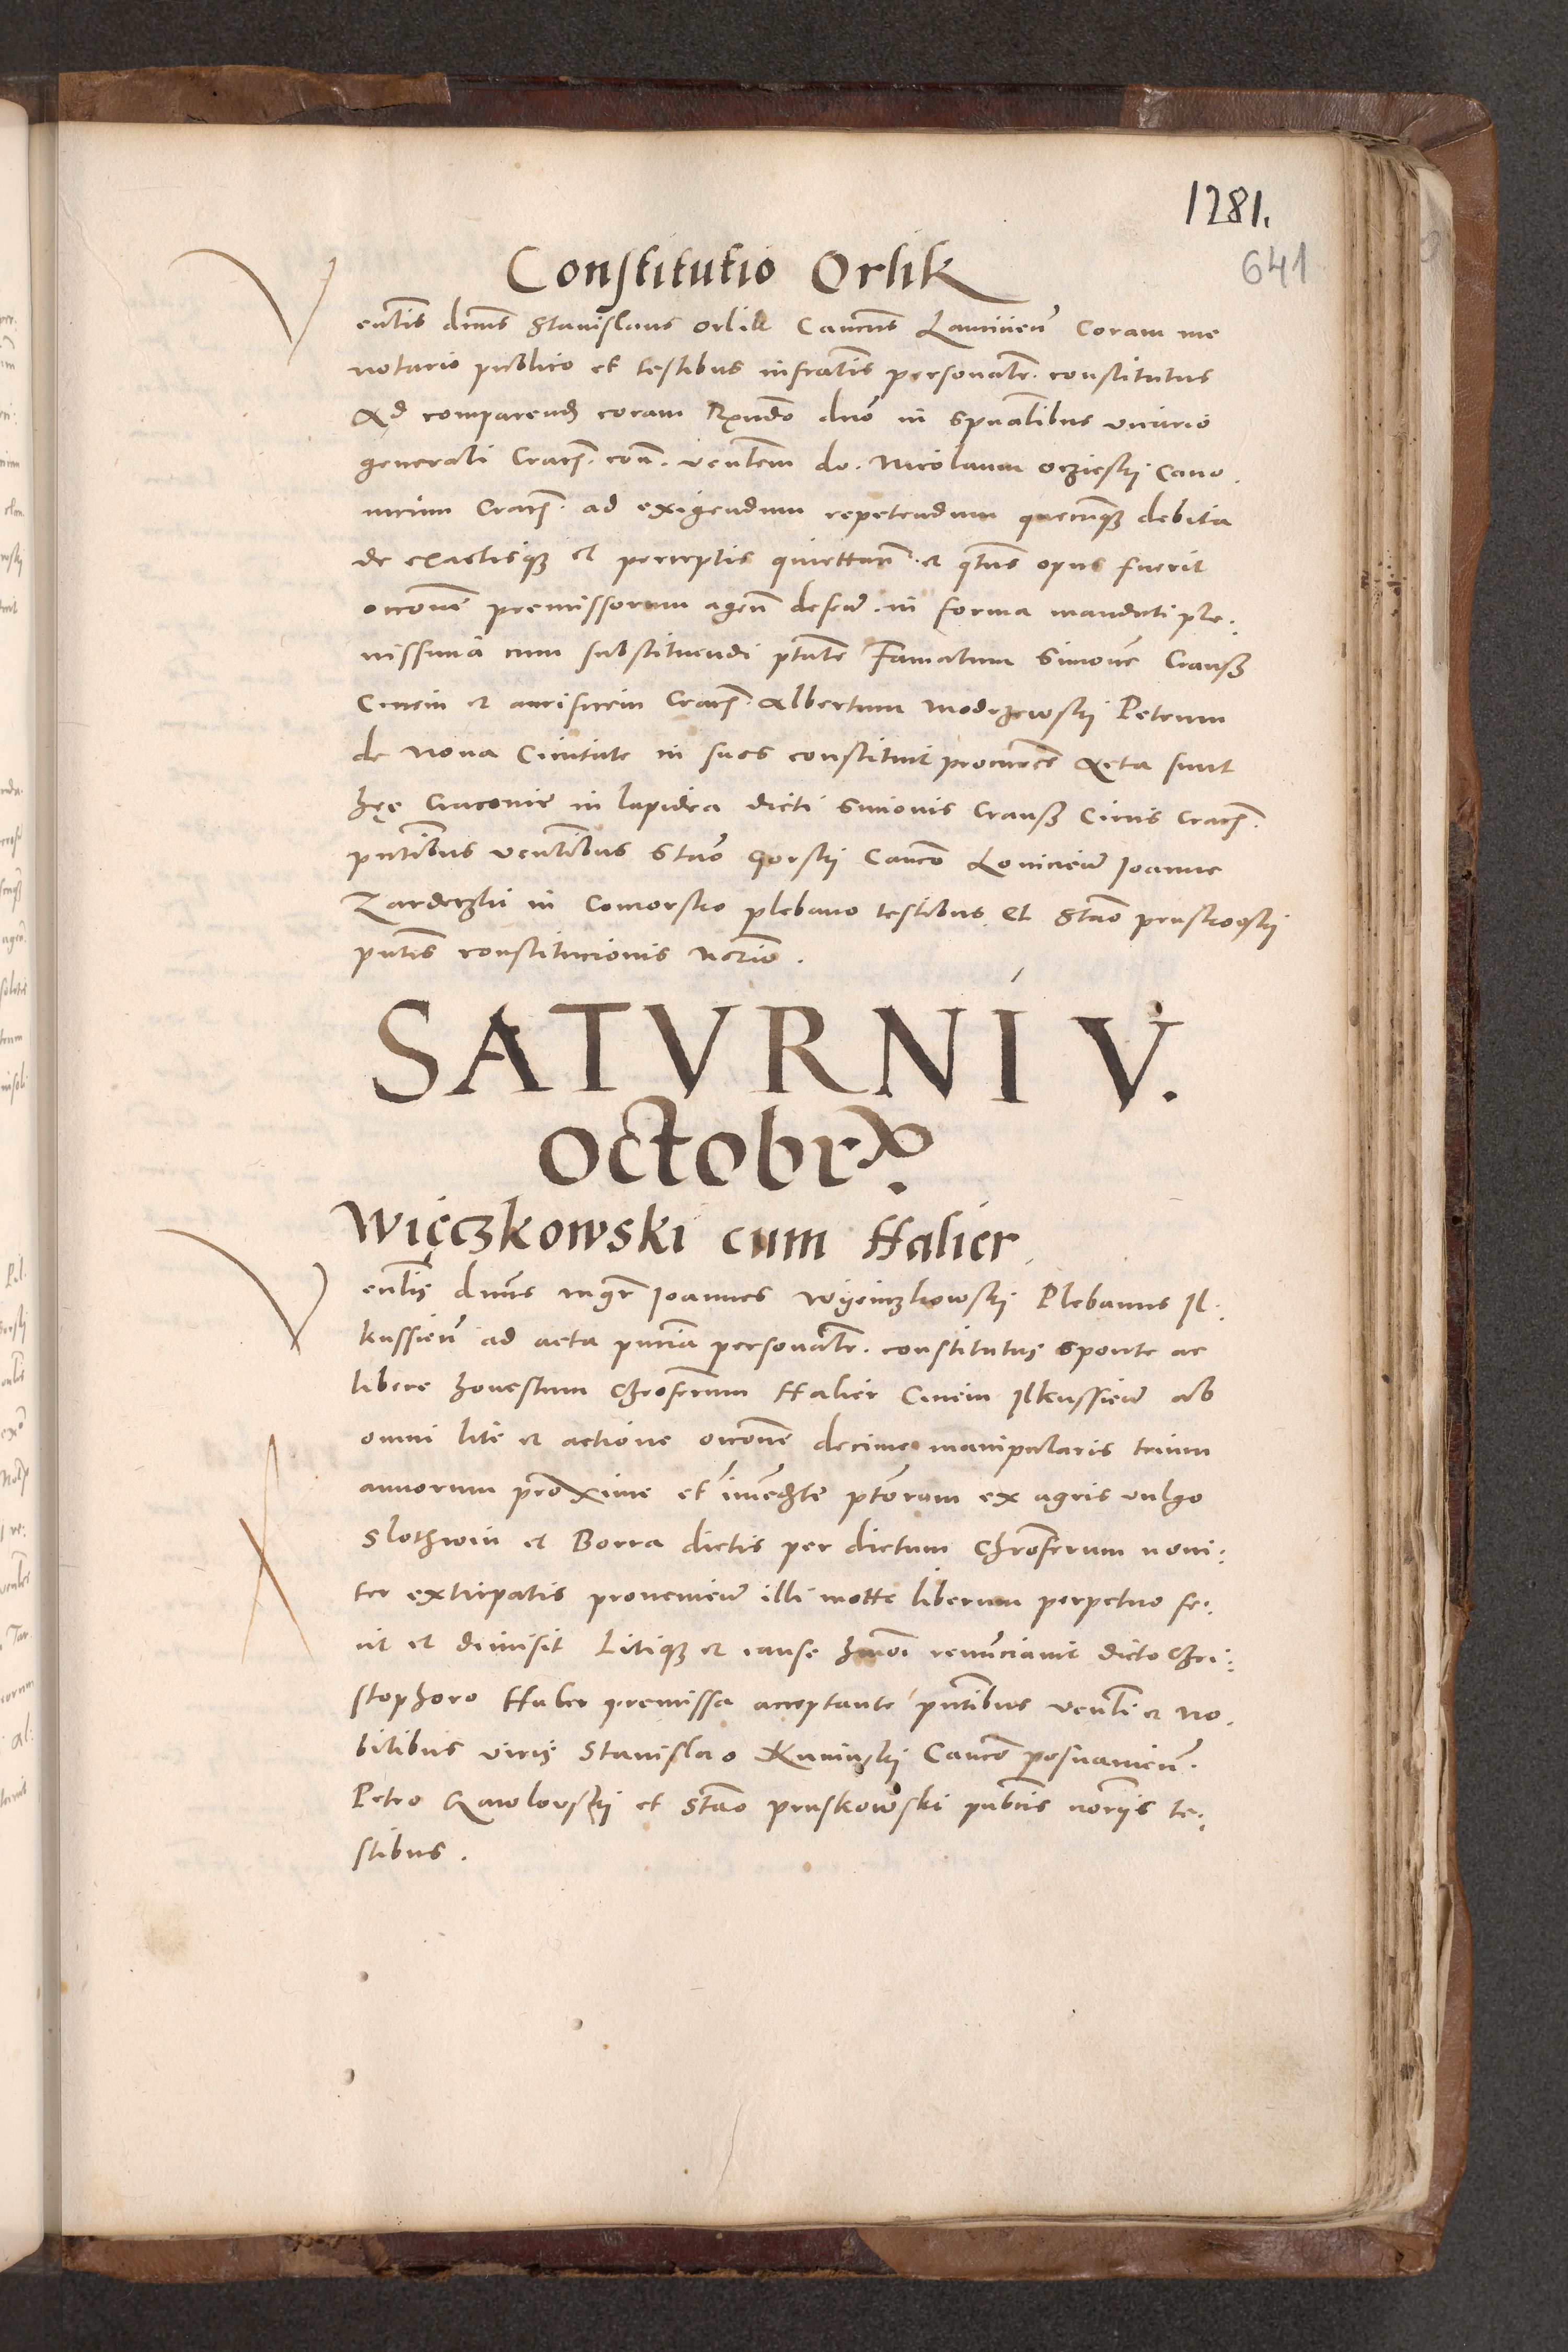 1281.
641
Constitutio Orlik
Venlis dnus Stanislaus Orlik Cancus Lanciien Coram me
notario publico et testibus infratis personalr. constitutus
Ad comparend coram Rndo dno in spualibus vicario
generali Crac. con. venlem do. Nicolaum Oczieskj Cano.
nicum Crac. ad exigendum repetendum quecunq debita
de exactisq et perceptis quiettan. et qtus opus fuerit
occone premissorum agen defen. in forma mandati ple.
nissima cum substituendi ptate Famatum Simone Crauss
Civem et aurifirem Crac. Albertum Modrzewskj Petrum
de nova Civitate in suos constituit procurres Acta sunt
hęc Cracovie in lapidea dicti Simonis Crauss Civis Crac.
pntibus venlibus Stao Gorskj Canco Lovicien Joanne
in Comorsko plebano testibus et Stao pruskowskj
pntis constitucionis Nrio.
SATVRNI V.
octobr.
Więczkowski cum Halier
Venlis dnus mgr Joannes Wyenczkowskj Plebanus Il.
kussien ad acta pntia personalr. constitutus sponte ac
libere honestum Chroferum Halier Civem Ilkussien ab
omni lite et actione occone decime manipularis trium
annorum proxime et imedte ptoram ex agris vulgo
Slothwin et Borra dictis per dictum Chroferum novi:
ter extirpatis provenien illi motte liberum perpetuo fe:
cit et dimisit Litiq et cause hmoi renunciavit dicto Chri:
stophoro Haler premissa acceptante pntibus venli et no.
bilibus viris Stanislao Canco posnanien.
Petro et Stao pruskowski pubcis noriis te.
stibus.